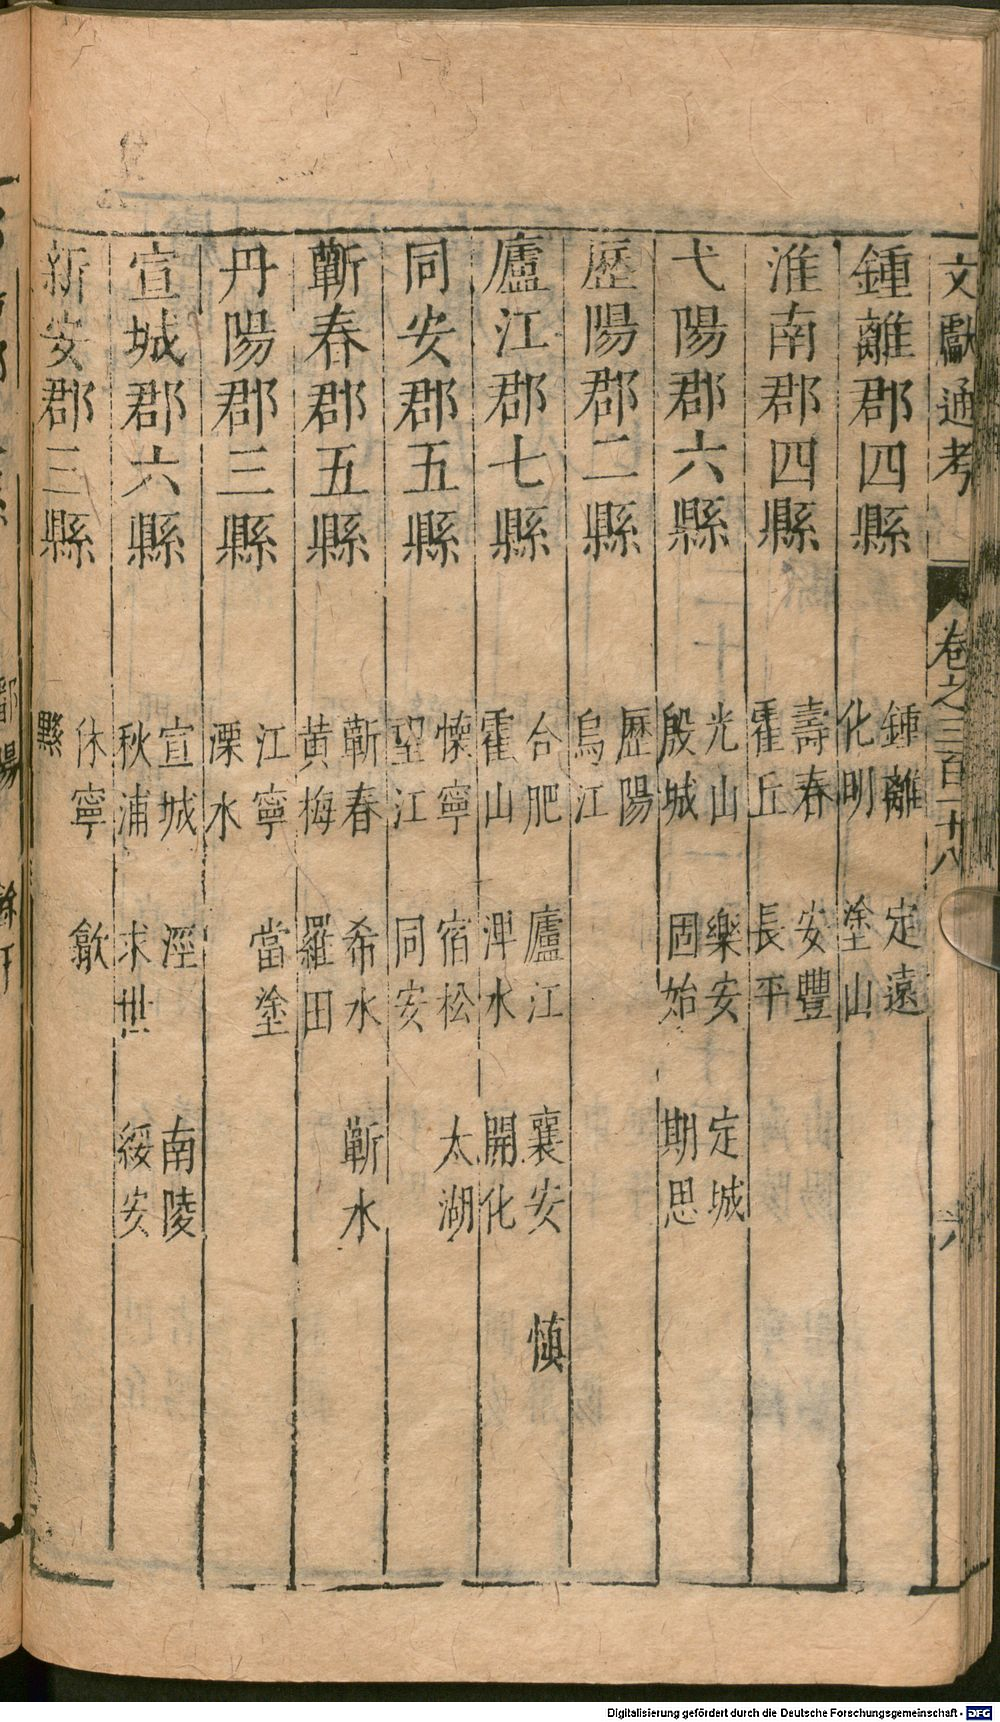 文獻通考 卷之三百一十八 六
鍾離郡四縣 鍾離 定遠
化明 塗山
淮南郡四縣 壽春 安豐
霍丘 長平
弋陽郡六縣 光山 樂安 定城
殷城 固始 期思
歷陽郡二縣 歷陽
烏江
廬江郡七縣 合肥 廬江 襄安 慎
霍山 渒水 開化
同安郡五縣 懷寧 宿松 太湖
望江 同安
蘄春郡五縣 蘄春 希水 蘄水
黃梅 羅田
丹陽郡三縣 江寧 當塗
溧水
宣城郡六縣 宣城 涇 南陵
秋浦 求世 綏安
新安郡三縣 休寧 歙
黟
Digitalisierung gefördert durch die Deutsche Forschungsgemeinschaft - DFG